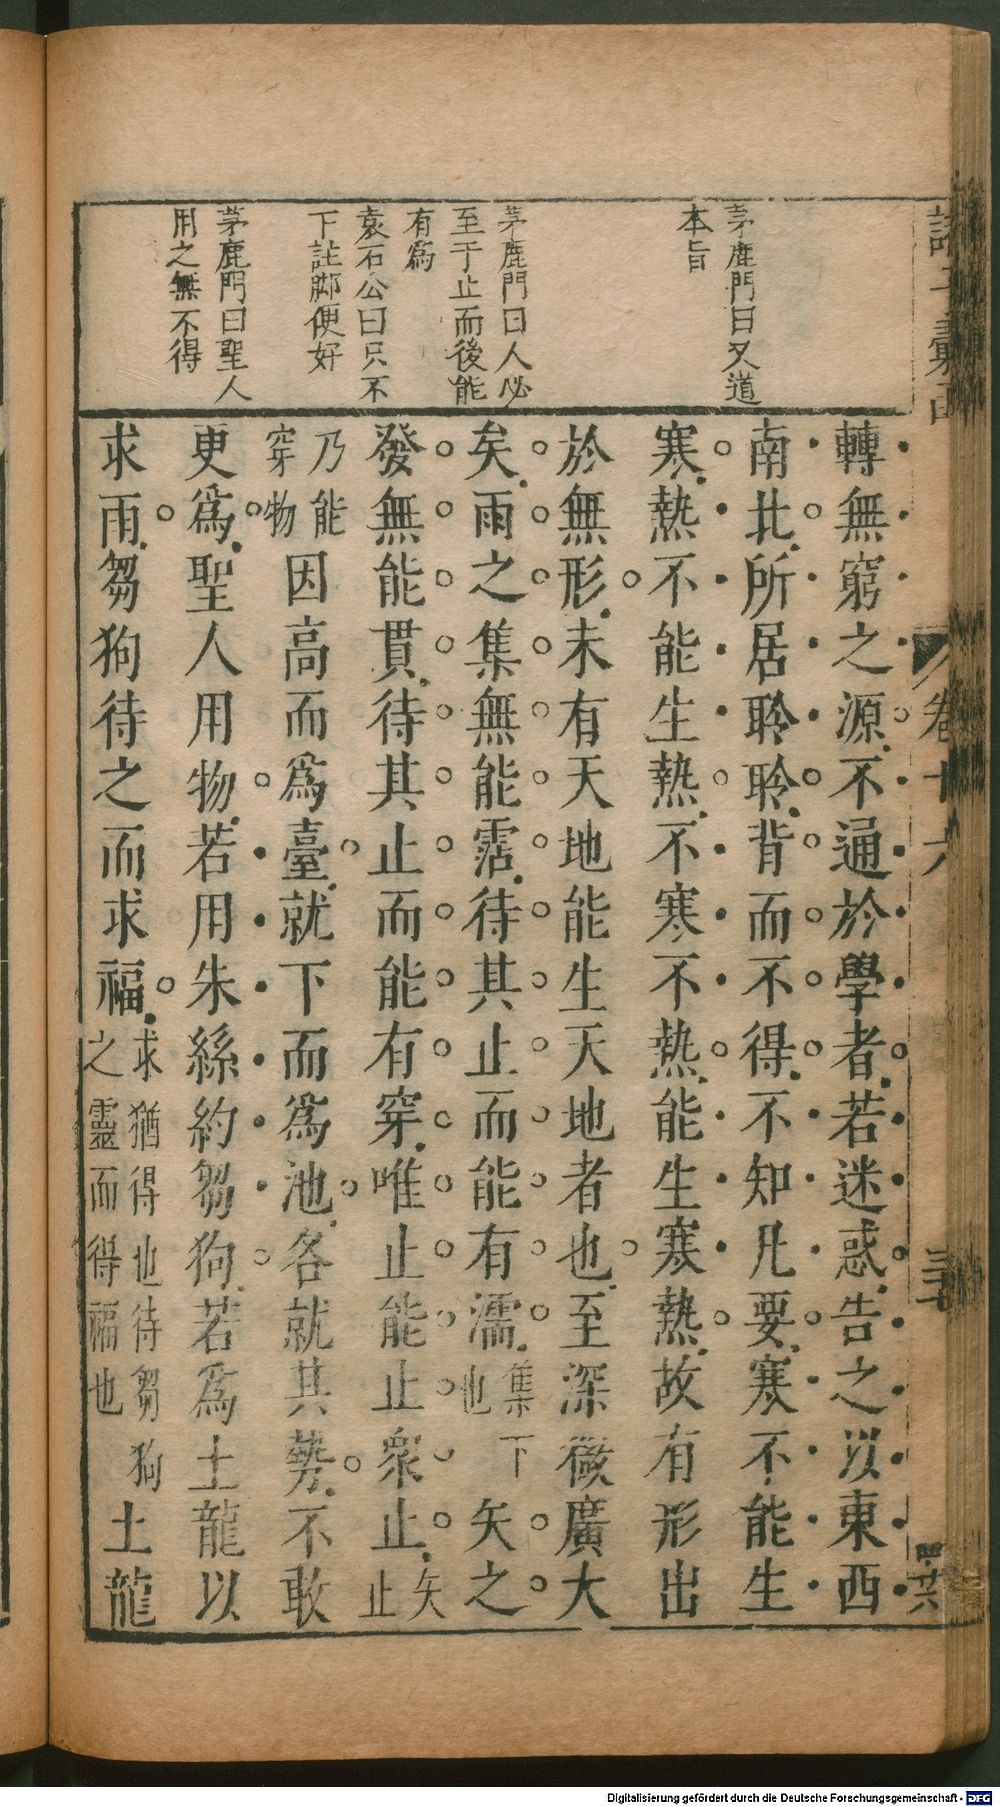 茅鹿門曰又道
本旨
茅鹿門曰人必
至于止而後能
有為
袁石公曰只不
下註脚便好
茅鹿門曰聖人
用之無不得
轉無窮之源不通於學者若迷惑告之以東西
南北所居聆聆背而不得不知凡要寒不能生
寒熱不能生熱不寒不熱能生寒熱故有形出
於無形未有天地能生天地者也至深微廣大
矣雨之集無能霑待其止而能有濡集下也矢之
發無能貫待其止而能有穿唯止能止衆止矢止
乃能穿物因高而為臺就下而為池各就其勢不敢
更為聖人用物若用朱絲約芻狗若為土龍以
求雨芻狗待之而求福求猶得也待芻狗之靈而得福也土龍
卷十六
三十七
十六
Digitalisierung gefördert durch die Deutsche Forschungsgemeinschaft - DFG